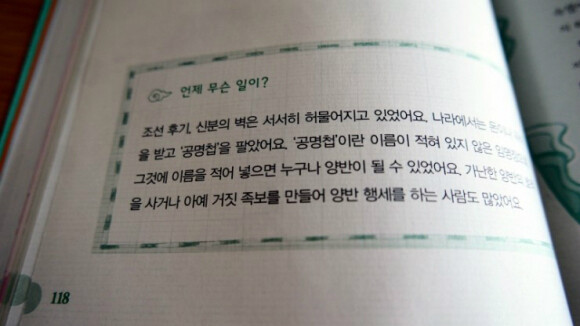 언제 무슨 일이?
조선 후기, 신분의 벽은 서서히 허물어지고 있었어요. 나라에서는
을 받고 '공명첩'을 팔았어요. '공명첩'이란 이름이 적혀 있지 않은
그것에 이름을 적어 넣으면 누구나 양반이 될 수 있었어요. 가난한 양반의
을 사거나 아예 거짓 족보를 만들어 양반 행세를 하는 사람도 많았어요.
118